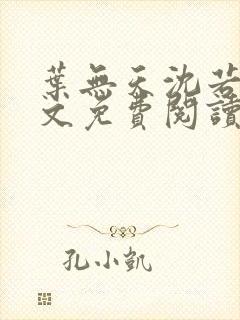 葉無天沈若
文免費閱讀
孔小凱